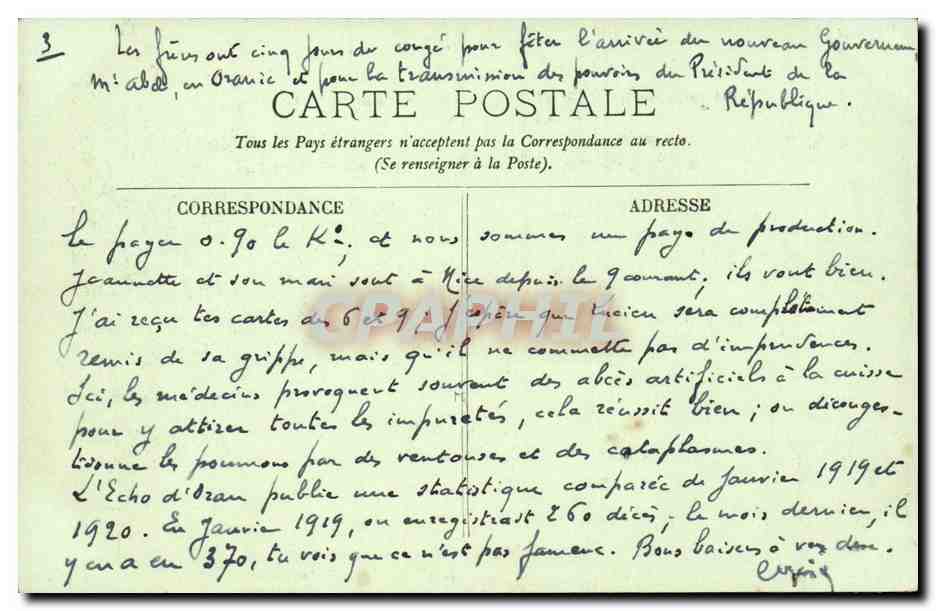 3 Les frères ont cinq jours de congé pour fêter l'arrivée du nouveau Gouverneur,
Mr Abel, en Oranie et pour la transmission des pouvoirs du Président de la
République.
CARTE POSTALE
Tous les Pays étrangers n'acceptent pas la Correspondance au recto.
(Se renseigner à la Poste).
CORRESPONDANCE
ADRESSE
le payer 0.90 le Ko, et nous sommes un pays de production.
Jeannette et son mari sont à Nice depuis le 9 courant; ils vont bien.
J'ai reçu tes cartes des 6 et 9; j'espère que Lucien sera complètement
remis de sa grippe, mais qu'il ne commette pas d'imprudences.
Ici, les médecins provoquent souvent des abcès artificiels à la cuisse
pour y attirer toutes les impuretés, cela réussit bien; on déconges-
tionne les poumons par des ventouses et des cataplasmes.
L'Echo d'Oran publie une statistique comparée de Janvier 1919 et
1920. En Janvier 1919, on enregistrait 260 décès; le mois dernier, il
y en a eu 370, tu vois que ce n'est pas fameux. Bons baisers à vous deux.
CPARAMA